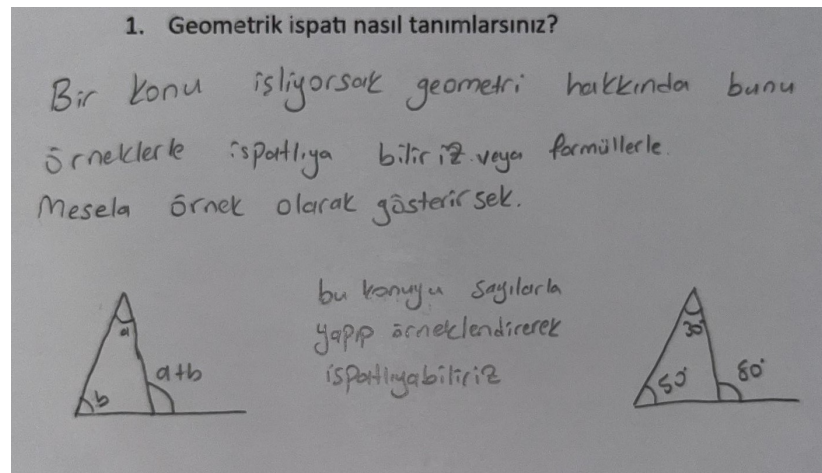 1. Geometrik ispatı nasıl tanımlarsınız?
Bir konu işliyorsak geometri hakkında bunu
örneklerle ispatlıya biliriz veya formüllerle.
Mesela örnek olarak gösterirsek.
bu konuyu sayılarla
yapıp örneklendirerek
ispatlıyabiliriz
a
b
a+b
30°
50°
80°